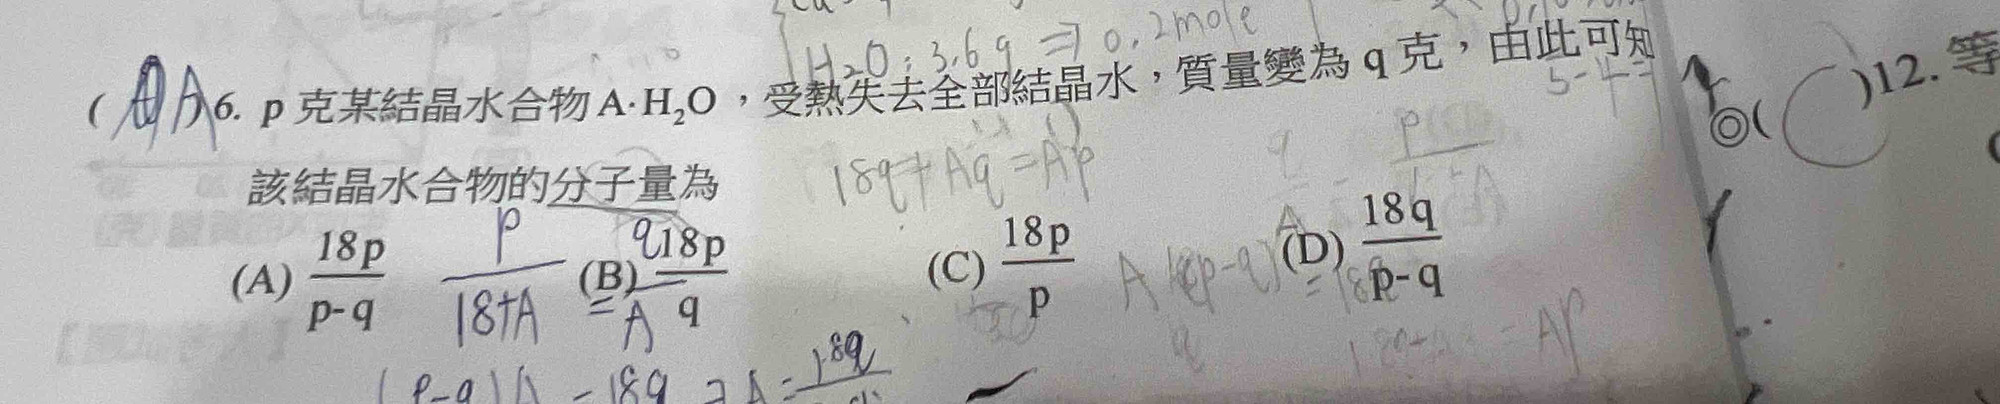 H₂O：3.6g ⇒ 0.2mole
( A )6. p 克某結晶水合物 A·H₂O，受熱失去全部結晶水，質量變為 q 克，由此可知
該結晶水合物的分子量為
18q+Aq=Ap
(A) 18p/p-q (B) 18p/q (C) 18p/p (D) 18q/p-q
p/18+A = q/A
A(p-q) = 18q
(p-q)A = 18q ⇒ A = 18q
)12. 等